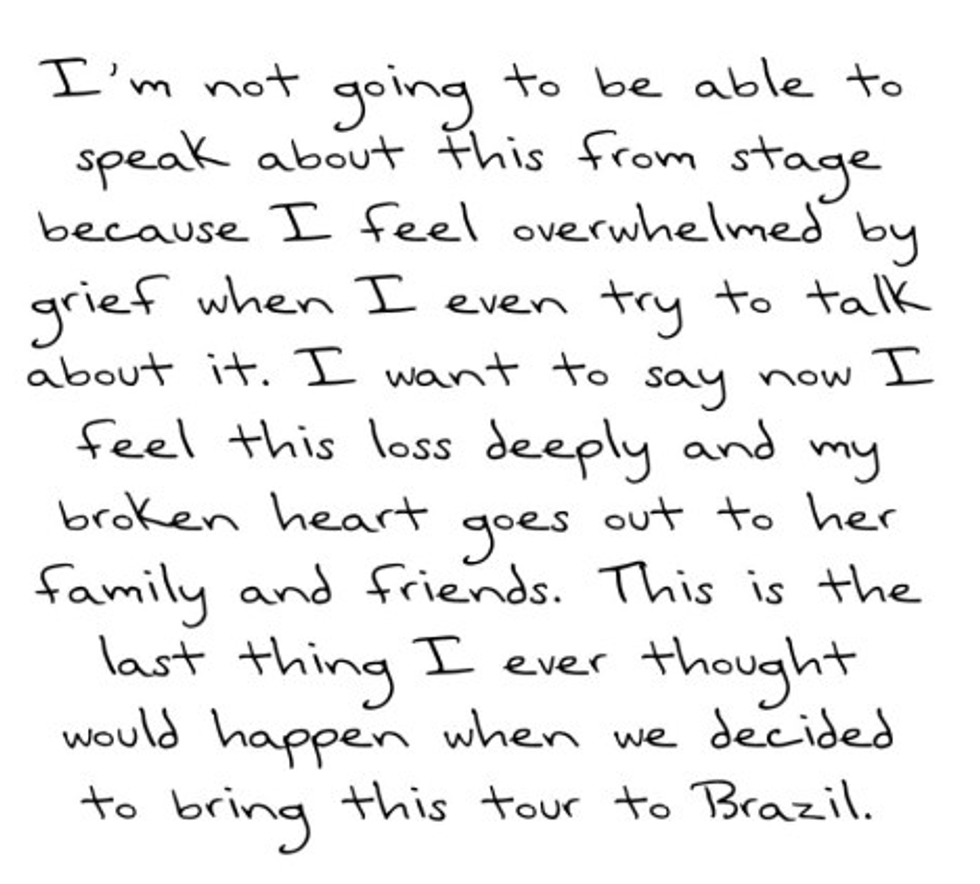 I'm not going to be able to
speak about this from stage
because I feel overwhelmed by
grief when I even try to talk
about it. I want to say now I
feel this loss deeply and my
broken heart goes out to her
family and friends. This is the
last thing I ever thought
would happen when we decided
to bring this tour to Brazil.